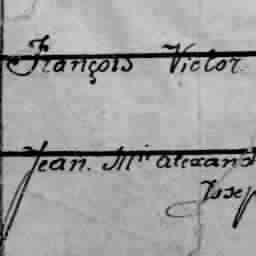 François Victor
Jean. Mⁱᵉ alexand